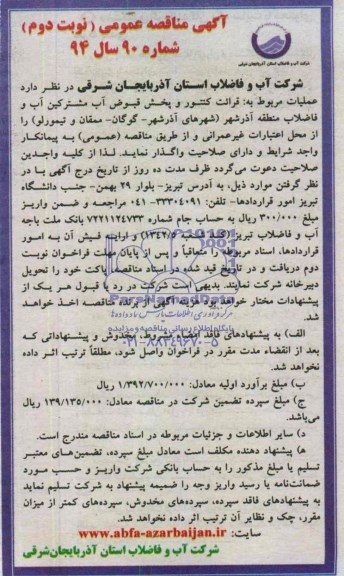 آگهی مناقصه عمومی (نوبت دوم)
شماره ۹۰ سال ۹۴
شرکت آب و فاضلاب استان آذربایجان شرقی
شرکت آب و فاضلاب استان آذربایجان شرقی در نظر دارد
عملیات مربوط به: قرائت کنتور و پخش قبوض آب مشترکین آب و
فاضلاب منطقه آذرشهر (شهرهای آذرشهر- گوگان- ممقان و تیمورلو) را
از محل اعتبارات غیرعمرانی و از طریق مناقصه (عمومی) به پیمانکار
واجد شرایط و دارای صلاحیت واگذار نماید. لذا از کلیه واجدین
صلاحیت دعوت می‌گردد ظرف مدت ده روز از تاریخ درج آگهی با در
نظر گرفتن موارد ذیل، به آدرس تبریز- بلوار ۲۹ بهمن- جنب دانشگاه
تبریز امور قراردادها- تلفن: ۳۳۳۰۴۰۹۱- ۰۴۱ مراجعه و ضمن واریز
مبلغ ۳۰۰/۰۰۰ ریال به حساب جام شماره ۷۲۲۱۱۲۴۷۳۳ بانک ملت باجه
آب و فاضلاب تبریز (کد شعبه ۱۳۴۲/۵) و ارایه فیش آن به امور
قراردادها، اسناد مربوطه را متعاقباً و پس از پایان مهلت فراخوان نوبت
دوم دریافت و در تاریخ قید شده در اسناد مناقصه، پاکت خود را تحویل
دبیرخانه شرکت نمایند. بدیهی است شرکت در رد یا قبول هر یک از
پیشنهادات مختار خواهد بود. هزینه آگهی از برنده مناقصه اخذ خواهد
شد.
الف) به پیشنهادهای فاقد امضاء، مشروط، مخدوش و پیشنهاداتی که
بعد از انقضاء مدت مقرر در فراخوان واصل شود، مطلقاً ترتیب اثر داده
نخواهد شد.
ب) مبلغ برآورد اولیه معادل: ۱/۳۹۲/۷۰۰/۰۰۰ ریال
ج) مبلغ سپرده تضمین شرکت در مناقصه معادل: ۱۳۹/۱۳۵/۰۰۰ ریال
می‌باشد.
د) سایر اطلاعات و جزئیات مربوطه در اسناد مناقصه مندرج است.
ه) پیشنهاد دهنده مکلف است معادل مبلغ سپرده، تضمین‌های معتبر
تسلیم یا مبلغ مذکور را به حساب بانکی شرکت واریز و حسب مورد
ضمانت‌نامه یا رسید واریز وجه را ضمیمه پیشنهاد به شرکت تسلیم نماید
به پیشنهادهای فاقد سپرده، سپرده‌های مخدوش، سپرده‌های کمتر از میزان
مقرر، چک و نظایر آن ترتیب اثر داده نخواهد شد.
سایت: www.abfa-azarbaijan.ir
شرکت آب و فاضلاب استان آذربایجان‌شرقی
ParsNamadData
پایگاه اطلاع رسانی مناقصه و مزایده
۰۲۱-۸۸۳۴۹۶۷۰-۵